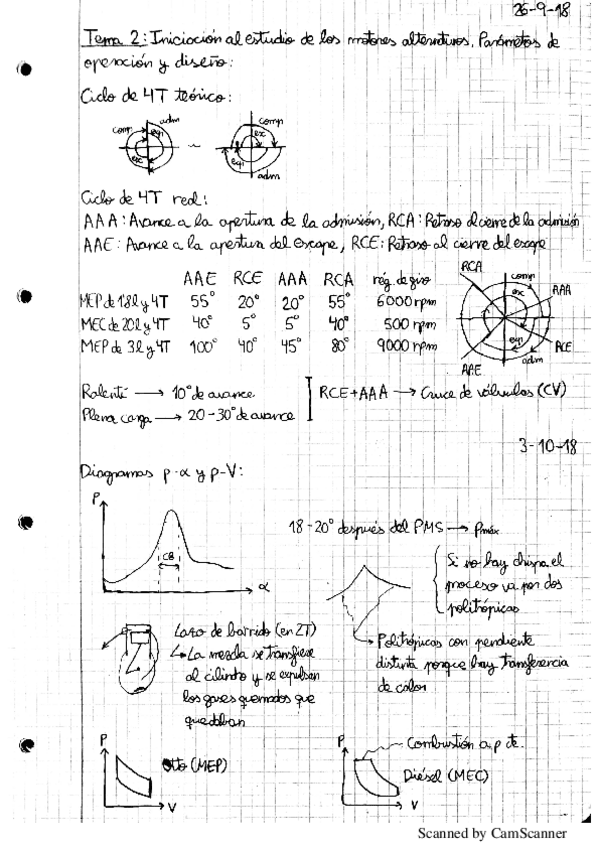 26-9-18
Tema 2: Iniciación al estudio de los motores alternativos. Parámetros de
operación y diseño:
Ciclo de 4T teórico:
adm
comp
exp
esc
~
comp
ex
exp
adm
Ciclo de 4T real:
AAA: Avance a la apertura de la admisión, RCA: Retraso al cierre de la admisión
AAE: Avance a la apertura del escape, RCE: Retraso al cierre del escape
AAE RCE AAA RCA rég. de giro
MEP de 1'8l y 4T 55° 20° 20° 55° 6000 rpm
MEC de 20l y 4T 40° 5° 5° 40° 500 rpm
MEP de 3l y 4T 100° 40° 45° 80° 9000 rpm
RCA
comp
AAA
ex
exp
RCE
adm
AAE
Ralentí → 10° de avance
Plena carga → 20-30° de avance
RCE+AAA → Cruce de válvulas (CV)
3-10-18
Diagramas p-α y p-V:
P
CB
α
18-20° después del PMS → Pmáx
Si no hay chispa el
proceso va por dos
politrópicas
Politrópicas con pendiente
distinta porque hay transferencia
de calor
Lazo de barrido (en 2T)
La mezcla se transfiere
al cilindro y se expulsan
los gases quemados que
quedaban
P
Otto (MEP)
V
P
Combustión a p cte.
Diésel (MEC)
V
Scanned by CamScanner